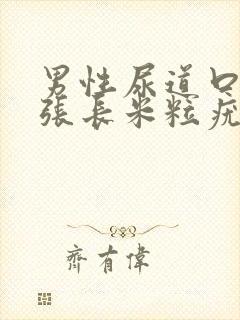 男性尿道口
張長米粒疣
齊有偉